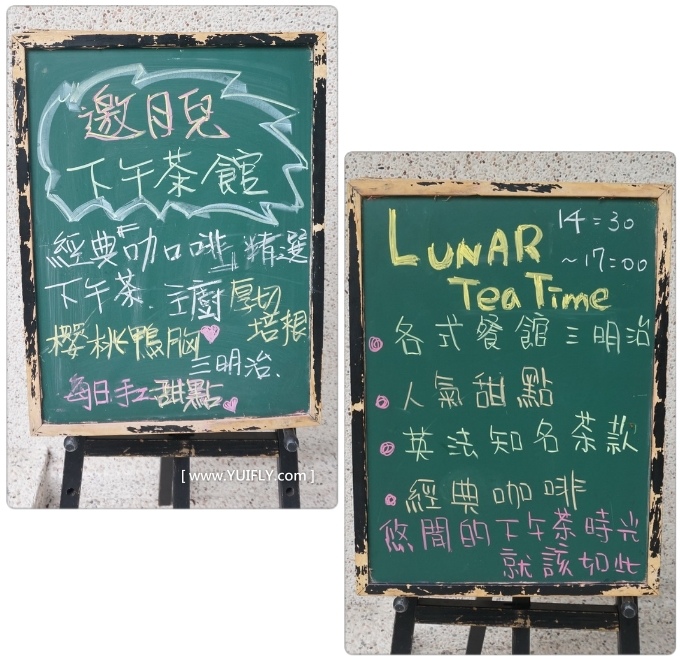 邀月兒
下午茶館
經典咖啡 精選
下午茶. 主廚厚切
櫻桃鴨胸 培根
三明治.
每日手工甜點
[ www.YUIFLY.com ]
LUNAR
14:30
~17:00
Tea Time
各式餐館三明治
人氣甜點
英法知名茶款
經典咖啡
悠閒的下午茶時光
就該如此